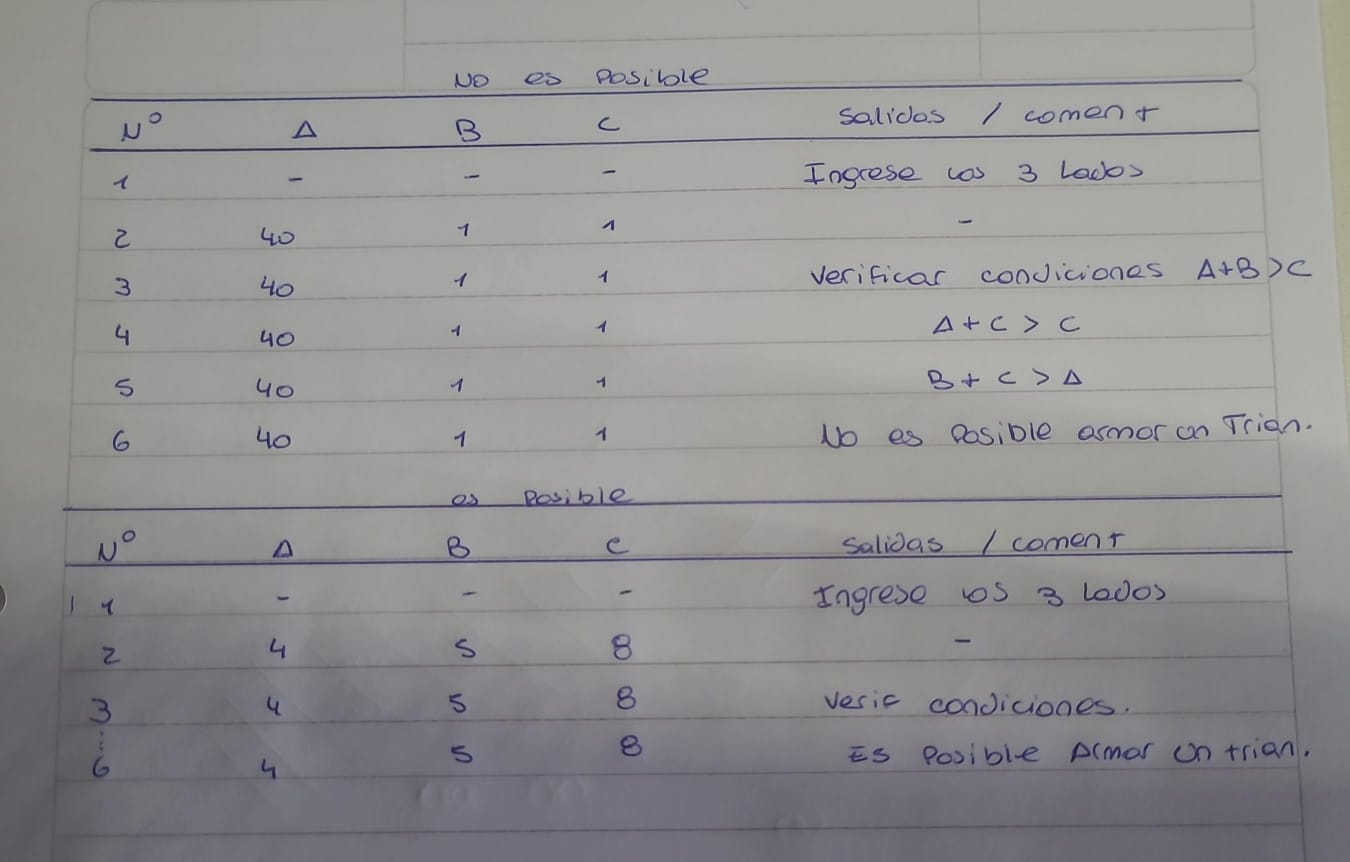 No es Posible
N° A B C Salidas / coment
1 - - - Ingrese los 3 Lados
2 40 1 1 -
3 40 1 1 Verificar condiciones A+B>C
4 40 1 1 A+C>C
5 40 1 1 B+C>A
6 40 1 1 No es Posible armar un Trian.
es Posible
N° A B C Salidas / coment
1 - - - Ingrese los 3 lados
2 4 5 8 -
3 4 5 8 Verif condiciones.
...
6 4 5 8 Es Posible Armar un trian.